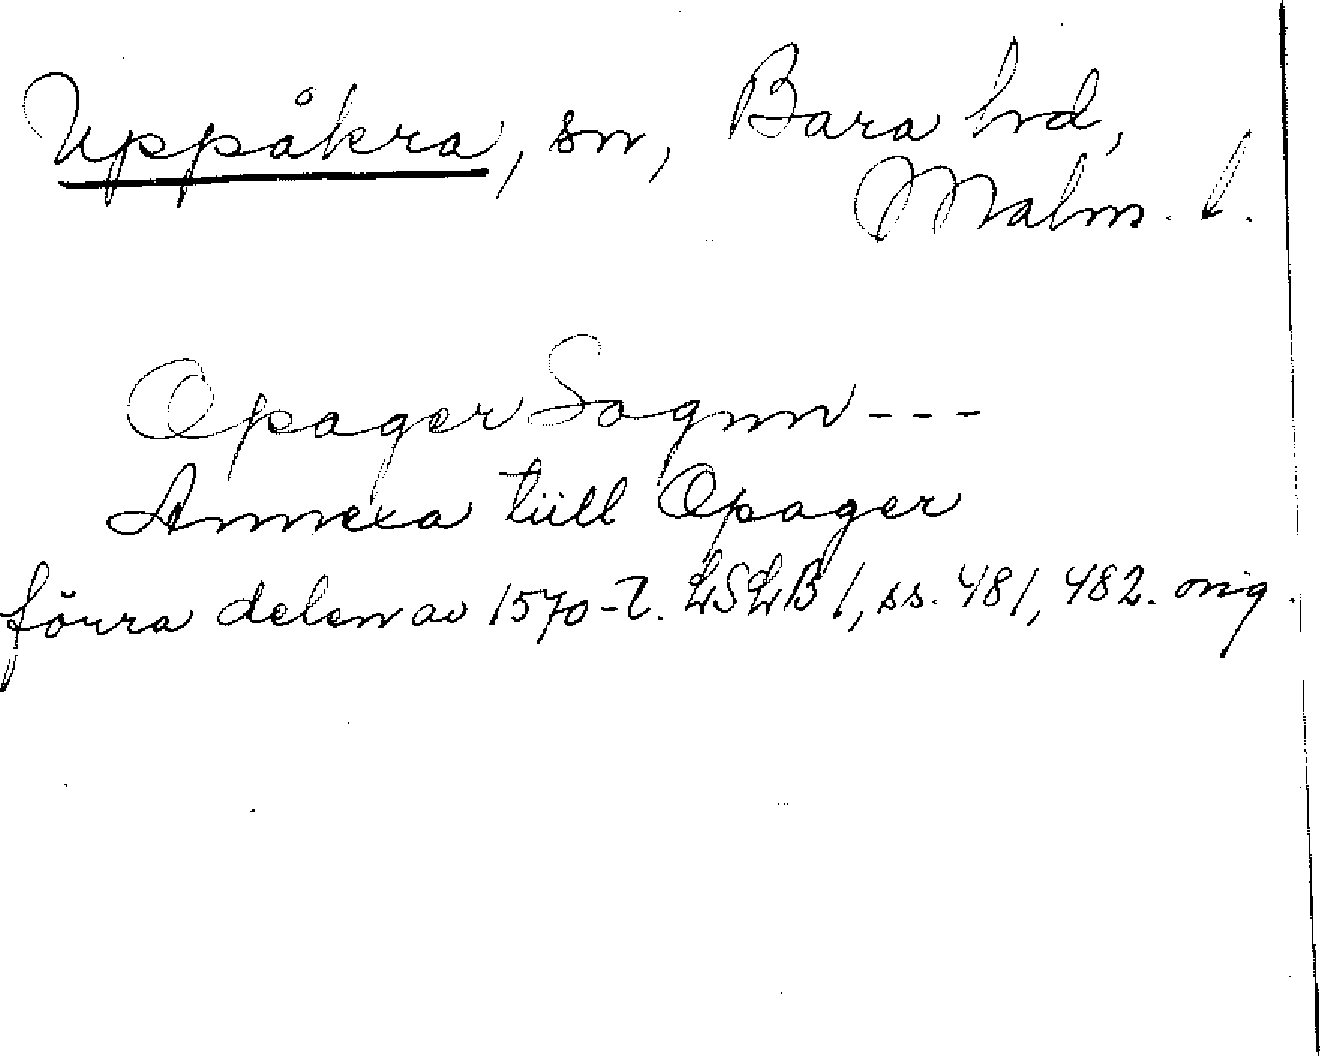 Uppåkra, sn, Bara hd,
Malm. l.
Opager Sognn ---
Annexa tüll Opager
förra delen av 1570-t. LSLB 1, ss. 481, 482. orig.